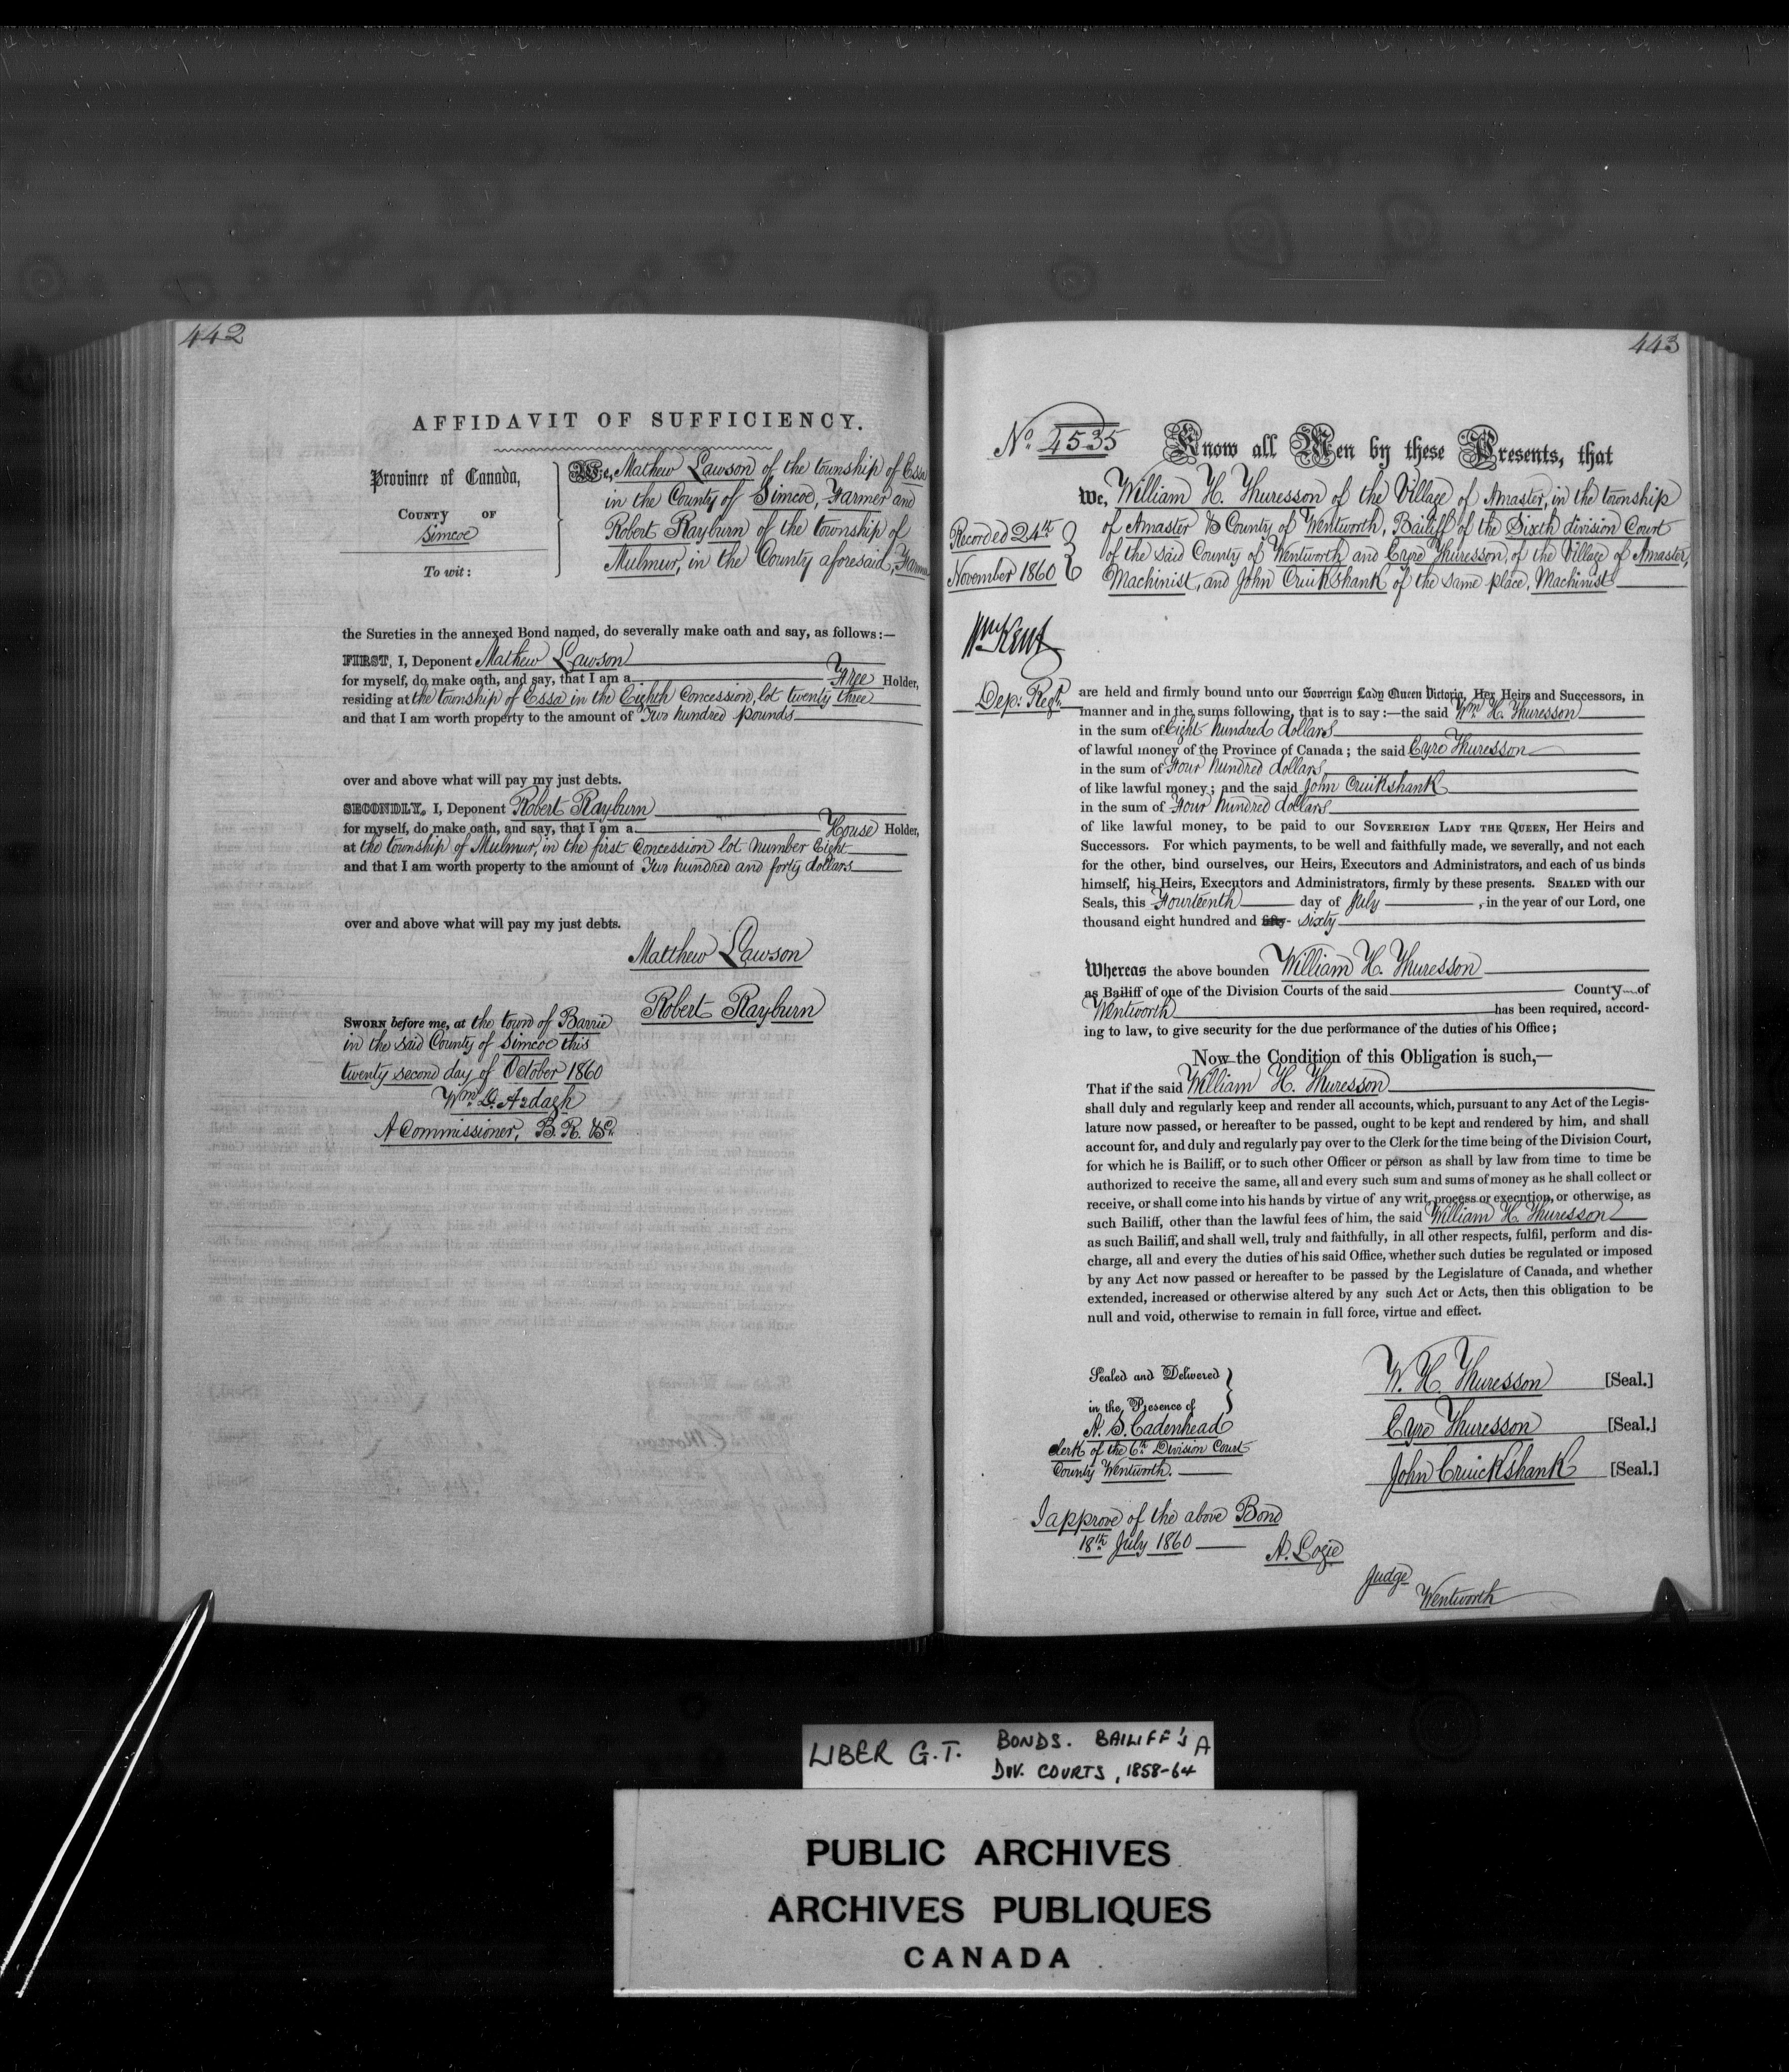 442
AFFIDAVIT OF SUFFICIENCY.
Province of Canada,
COUNTY OF
Simcoe
To wit:
We, Mathew Lawson of the township of Essa
in the County of Simcoe, Farmer and
Robert Rayburn of the township of
Mulmur, in the County aforesaid, Farmer
the Sureties in the annexed Bond named, do severally make oath and say, as follows:—
FIRST, I, Deponent Mathew Lawson
for myself, do make oath, and say, that I am a Free Holder,
residing at the township of Essa in the Eighth Concession, lot twenty three
and that I am worth property to the amount of Two hundred pounds
over and above what will pay my just debts.
SECONDLY, I, Deponent Robert Rayburn
for myself, do make oath, and say, that I am a House Holder,
at the township of Mulmur, in the first Concession lot Number Eight
and that I am worth property to the amount of Two hundred and forty dollars
over and above what will pay my just debts.
Matthew Lawson
Robert Rayburn
SWORN before me, at the town of Barrie
in the said County of Simcoe this
twenty second day of October 1860
Wm. D. Ardagh
A Commissioner, B. R. &c.
443
No. 4535
Know all Men by these Presents, that
We, William H. Thuresson of the Village of Amaster, in the township
of Amaster & County of Wentworth, Bailiff of the Sixth division Court
of the said County of Wentworth and Eyre Thuresson, of the Village of Amaster,
Machinist, and John Cruikshank of the same place, Machinist
Recorded 24th
November 1860
Wm Kent
Dep: Regr.
are held and firmly bound unto our Sovereign Lady Queen Victoria, Her Heirs and Successors, in
manner and in the sums following, that is to say:—the said Wm. H. Thuresson
in the sum of Eight hundred dollars
of lawful money of the Province of Canada; the said Eyre Thuresson
in the sum of Four hundred dollars
of like lawful money; and the said John Cruikshank
in the sum of Four hundred dollars
of like lawful money, to be paid to our SOVEREIGN LADY THE QUEEN, Her Heirs and
Successors. For which payments, to be well and faithfully made, we severally, and not each
for the other, bind ourselves, our Heirs, Executors and Administrators, and each of us binds
himself, his Heirs, Executors and Administrators, firmly by these presents. SEALED with our
Seals, this Fourteenth day of July, in the year of our Lord, one
thousand eight hundred and fifty- sixty
Whereas the above bounden William H. Thuresson
as Bailiff of one of the Division Courts of the said County of
Wentworth has been required, accord-
ing to law, to give security for the due performance of the duties of his Office;
Now the Condition of this Obligation is such,—
That if the said William H. Thuresson
shall duly and regularly keep and render all accounts, which, pursuant to any Act of the Legis-
lature now passed, or hereafter to be passed, ought to be kept and rendered by him, and shall
account for, and duly and regularly pay over to the Clerk for the time being of the Division Court,
for which he is Bailiff, or to such other Officer or person as shall by law from time to time be
authorized to receive the same, all and every such sum and sums of money as he shall collect or
receive, or shall come into his hands by virtue of any writ, process or execution, or otherwise, as
such Bailiff, other than the lawful fees of him, the said William H. Thuresson
as such Bailiff, and shall well, truly and faithfully, in all other respects, fulfil, perform and dis-
charge, all and every the duties of his said Office, whether such duties be regulated or imposed
by any Act now passed or hereafter to be passed by the Legislature of Canada, and whether
extended, increased or otherwise altered by any such Act or Acts, then this obligation to be
null and void, otherwise to remain in full force, virtue and effect.
Sealed and Delivered
in the Presence of
A. S. Cadenhead
Clerk of the 6th Division Court
County Wentworth.
W. H. Thuresson [Seal.]
Eyre Thuresson [Seal.]
John Cruickshank [Seal.]
I approve of the above Bond
18th July 1860
A. Logie
Judge
Wentworth
LIBER G.T. BONDS. BAILIFF'S A
DIV. COURTS, 1858-64
PUBLIC ARCHIVES
ARCHIVES PUBLIQUES
CANADA